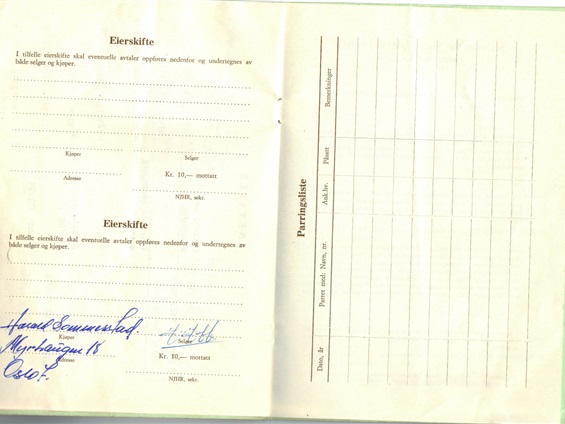 Eierskifte
I tilfelle eierskifte skal eventuelle avtaler oppføres nedenfor og undertegnes av
både selger og kjøper.
Kjøper
Selger
Adresse
Kr. 10,— mottatt
NJHR, sekr.
Eierskifte
I tilfelle eierskifte skal eventuelle avtaler oppføres nedenfor og undertegnes av
både selger og kjøper.
Harald Sommerstad.
Kjøper
Selger
18
Adresse
Kr. 10,— mottatt
Oslo 7.
NJHR, sekr.
Parringsliste
Dato, år
Parret med: Navn, nr.
Ank.hv.
Påsatt
Bemerkninger